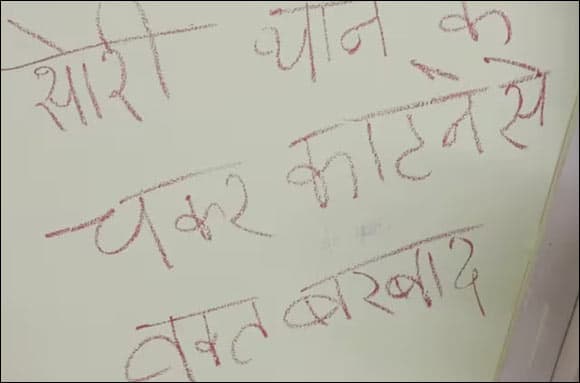 सोरी थान क
चकर काटने से
वक्त बरबाद